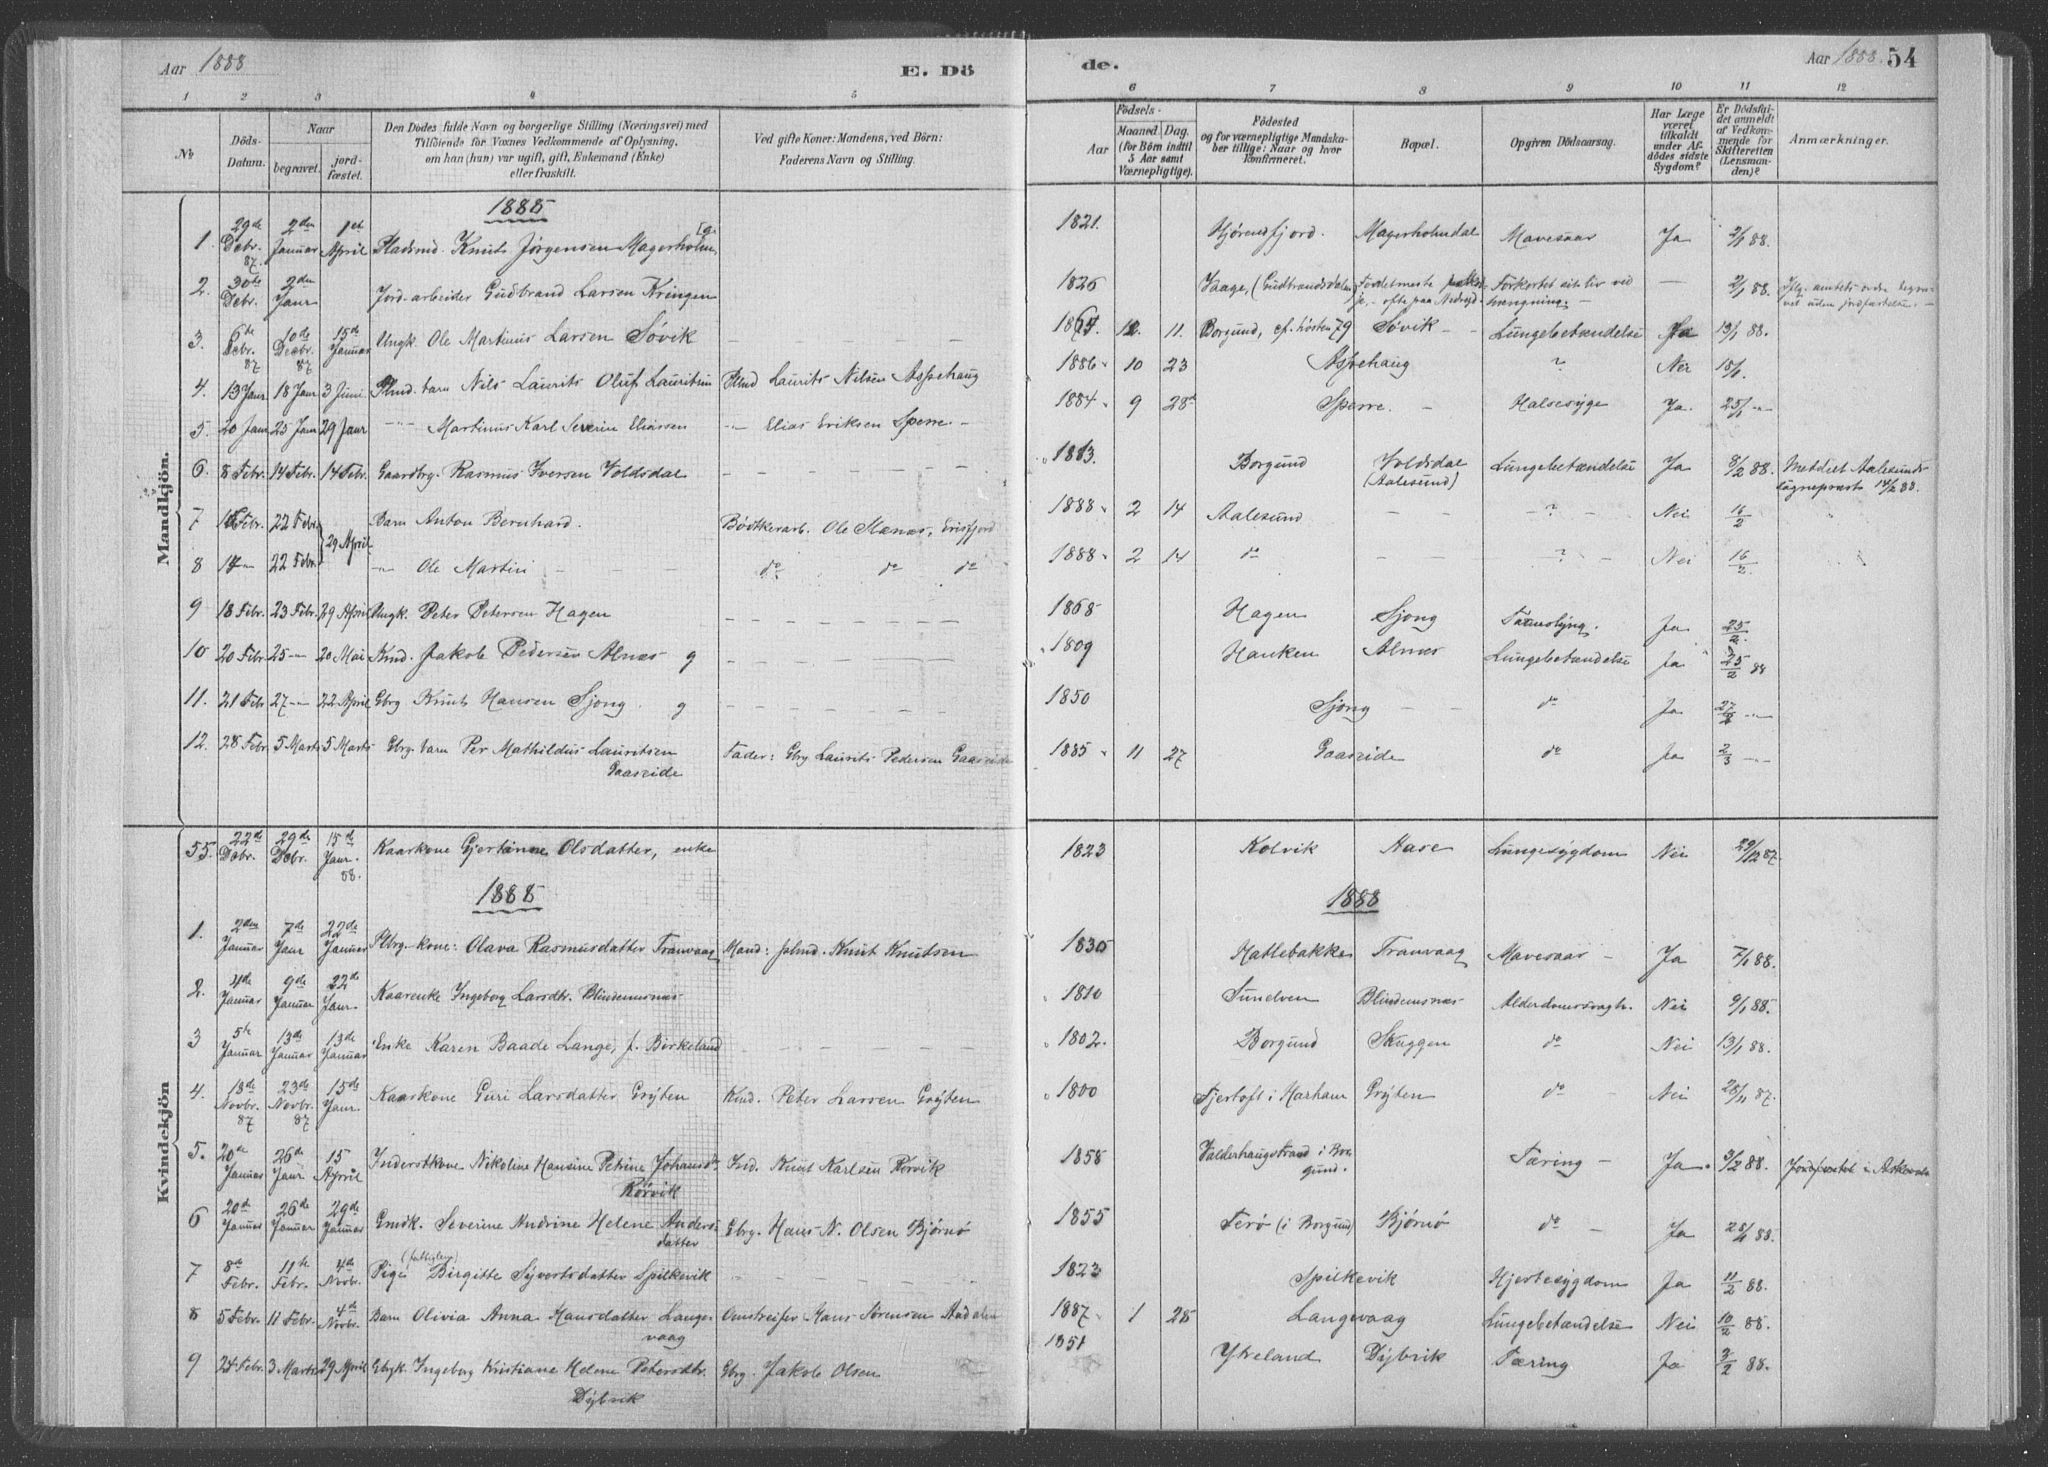 Aar 1888
E. Dö
de.
Aar 1888. 54
1 2 3 4 5 6 7 8 9 10 11 12
No
Döds-Datum.
Naar
begravet.
jord-fæstet.
Den Dödes fulde Navn og borgerlige Stilling (Næringsvei) med
Tilföiende for Voxnes Vedkommende af Oplysning,
om han (hun) var ugift, gift, Enkemand (Enke)
eller fraskilt.
Ved gifte Koner: Mandens, ved Börn:
Faderens Navn og Stilling.
Födsels-
Aar
Maaned Dag.
(for Börn indtil
5 Aar samt
Værnepligtige).
Födested
og for værnepligtige Mandska-
ber tillige: Naar og hvor
konfirmeret.
Bopæl.
Opgiven Dödsaarsag.
Har Læge
været
tilkaldt
under Af-
dödes sidste
Sygdom?
Er Dödsfal-
det anmeldt
af Vedkom-
mende for
Skifteretten
(Lensman-
den)?
Anmærkninger.
Mandkjön.
1888
1. 29de Debr. 87. 2den Januar 1st April Pladsmd. Knut Jørgensen Magerholm 1821. Hjørendfjord. Magerholmdal Mavesaar Ja 2/1 88.
2. 30te Debr. 2den Janr Jord-arbeider Gudbrand Larsen Kringen 1826 Vaage, (Gudbrandsdalen) Forkortet sit liv ved hængning. — 2/1 88.
3. 6te Debr. 87 10de Decbr 87 15de Januar Ungk. Ole Martinus Larsen Søvik 11. Borgund, cf. høsten 79 Søvik Lungebetændelse Ja 13/1 88.
4. 13 Janr 18 Janr 3 Juni Plmd. barn Nils Laurits Oluf Lauritsen Plmd Laurits Nilsen Aspehaug 1886 10 23 Aspehaug ? Nei 18/1
5. 20 Janr 25 Janr 29 Janr —"— Martinus Karl Severin Eliassen —"— Elias Eriksen Sperre 1884 9 28 Sperre. Halsesyge Ja. 25/1 —"—
6. 8 Febr. 14 Febr. 14 Febr. Gaardbrg. Rasmus Iversen Voldsdal 1813. Borgund Voldsdal (Aalesund) Lungebetændelse Ja 8/2 88. Meddelt Aalesunds sognepræst 14/2 88.
7 Febr. 22 Febr. 29 April Barn Anton Bernhard. Bødtkerarb. Ole Stenæs, Erisfjord 1888 2 14 Aalesund ? Nei 16/2
8 14 —"— 22 Febr. —"— Ole Martin do do do 1888 2 14 do ? Nei 16/2
9 18 Febr. 23 Febr. 29 April Ungk. Peter Petersen Hagen 1868 Hagen Sjong Ja 25/2
10 20 Febr. 25 —"— 20 Mai Kmd. Jakob Pedersen Alnæs g 1809 Hanken Alnæs Lungebetændelse Ja 25/2 88
11. 21 Febr 27 —"— 22 April Gbrg Knut Hansen Sjong. g 1850 Sjong do Ja 27/2 —"—
12. 28 Febr. 5 Marts 5 Marts Gbrg. barn Per Mathildus Lauritsen Gaaseide Fader: Gbrg Laurits Pedersen Gaaseide 1885 11 27 Gaaseide do Ja 2/3 —"—
Kvindekjön
55. 22de Debr. 29de Debr. 15de Janr. 88. Kaarkone Gjertine Olsdatter, enke 1823 Kolvik Aase Lungesygdom Nei 29/12 87.
1888 1888
1. 2den Januar 7de Janr 22de Januar Olava Rasmusdatter Tranvaag Mand: Knut Knutsen 1830 Hatlebakke Tranvaag Mavesaar Ja 7/1 88.
2. 4de Januar 9de Januar 22de Janr. Kaarenke Ingeborg Larsdtr. Blindemsnæs 1810 Sundven Blindemsnæs Alderdomssvagh. Nei 9/1 88.
3 5te Januar 13de Januar 13de Januar Enke Karen Baade Lange, f. Birkeland 1802. Borgund Skuggen do Nei 13/1 88.
4. 18de Novbr. 87 23de Novbr. 87 15de Janr. Kaarkone Guri Larsdatter Grÿten Kmd. Peter Larsen Grÿten 1800 Fjertoft i Harham Grÿten do Nei 28/11 87.
5. 20de Januar 26de Janr 15 April Inderstkone Nikoline Hansine Petrine Johansdtr Rørvik Ind. Knut Karlsen Rørvik 1858 Valderhaugstrand i Borgund. Tæring Ja 3/2 88. Jordfæstet i
6 20de Januar 26de Januar 29de Januar Gmdk. Severine Andrine Helene Andersdatter Gbrg. Hans N. Olsen Bjørnø 1855 Terø (i Borgund) Bjørnø do Ja 28/1 88.
7 8de Febr. 11te Febr. 4de Novbr. Pige (fattiglem) Birgitte Syvertsdatter Spilkevik 1823 Spilkevik Hjertesygdom Ja 11/2 88.
8 5 Febr. 11 Febr. 4de Novbr. Barn Olivia Anna Hansdatter Langevaag Omstreifer Hans Sørensen Aadalen 1887 1 28 Langevaag Lungebetændelse Nei 10/2 88.
9 24 Febr. 3 Marts 29 April Gbrgk. Ingeborg Kristiane Helene Petersdtr. Dÿbvik Gbrg. Jakob Olsen 1851 Ykeland Dÿbvik Tæring Ja 3/2 88.